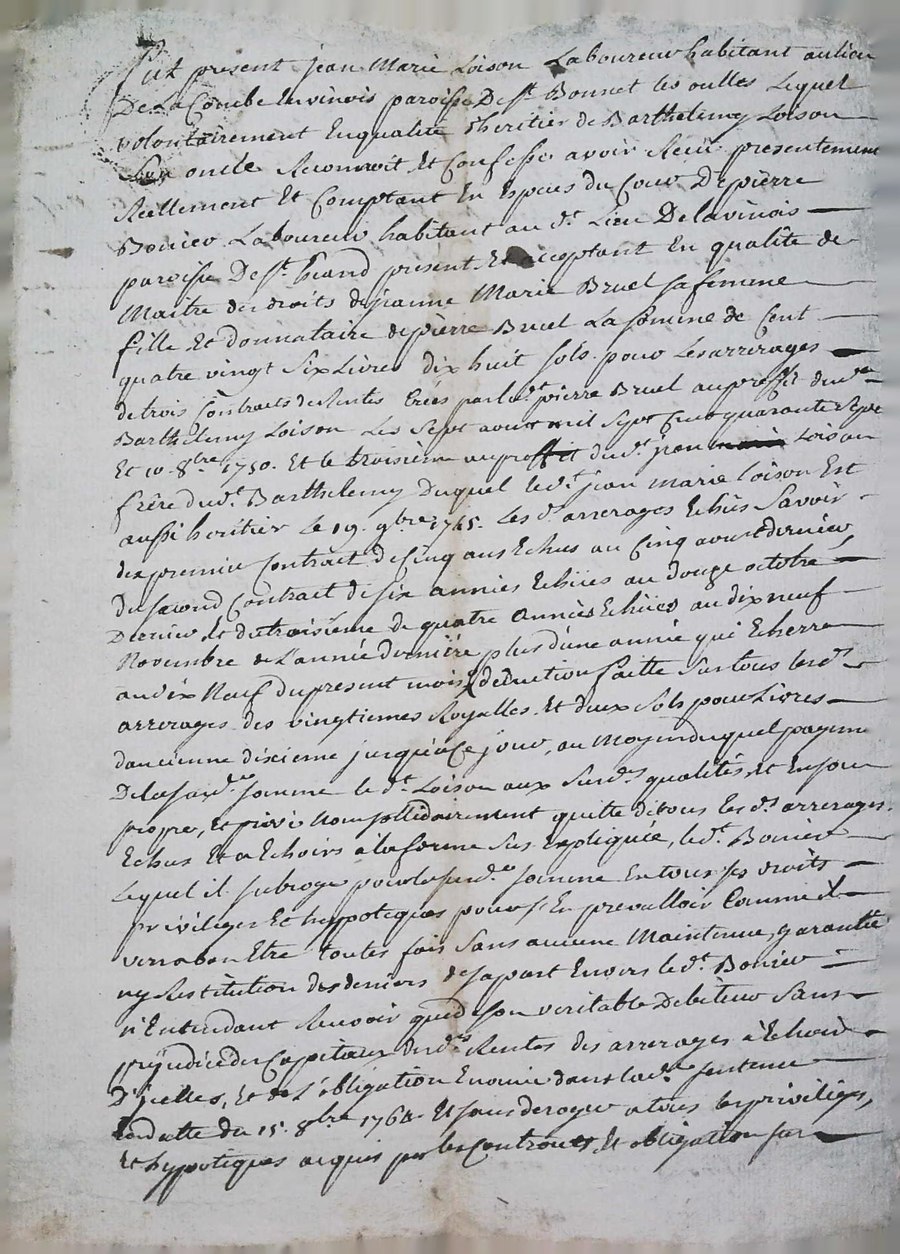 Fut present jean Marie Loison Laboureur habitant au lieu
De La Combe Lavinois paroisse De st. Bonnet les oulles Lequel
volontairement En qualité d'heritier de Barthelemy Loison
Son oncle Reconnoit Et Confesse avoir Reçû presentement
Réellement Et Comptant En Especes du Cour De pierre
Bonier Laboureur habitant au dt. Lieu De Lavinois
paroisse De st. heand present Et acceptant En qualité de
Maitre des droits de jeanne Marie Bruel sa femme
fille Et donnataire de pierre Bruel La somme de Cent
quatre vingt Six Livres dix huit sols pour Les arrérages
de trois Contracts de Rentes Créés par led. pierre Bruel au proffit dud.
Barthelemy Loison Les Sept aoust mil Sept Cent quarante Sept
Et 10. 8bre 1750. Et le troisieme au proffit dud. jean Loison
frère dud. Barthelemy Duquel led. jean marie Loison Est
aussi heritier Le 19. 9bre 1745. Les d. arrerages Echûs Savoir
du premier Contract de Cinq ans Echus au Cinq aoust dernier
du second Contract de six années Echües au douze octobre
Dernier Et du troisième de quatre années Echües au dix neuf
Novembre de L'année dernière plus d'une année qui Echerra
au dix Neuf du present mois déduction faitte Sur tous lesds.
arrerages des vingtiemes Royalles Et deux Sols pour Livres
d'ancienne dixieme jusqu'à ce jour, au Moyen duquel payement
De lasusd. somme le dt. Loison aux Susds. qualités, et En son
propre, et privé Nom sollidairement quitte de tous les ds. arrerages
Echus Et a Echoirs à la forme Sus Expliquée, le dt. Bonier
Lequel il subroge pour la susd. somme En tous ses droits
privileges Et hypoteques pour s'En prevalloir Comme il
verra bon Etre toutes fois Sans aucune Maintenue, garantie
ny Restitution des deniers de sa part Envers le dt. Bonier
N'Entendant Sans
préjudice des Capitaux desds. Rentes des arrerages à Echoir
D'icelles, Et de L'obligation Enoncée dans lad. sentence
En datte du 15. 8bre 1764. Et sans deroger a tous les privileges,
Et hypoteques acquis par les Contracts, Et obligation sur